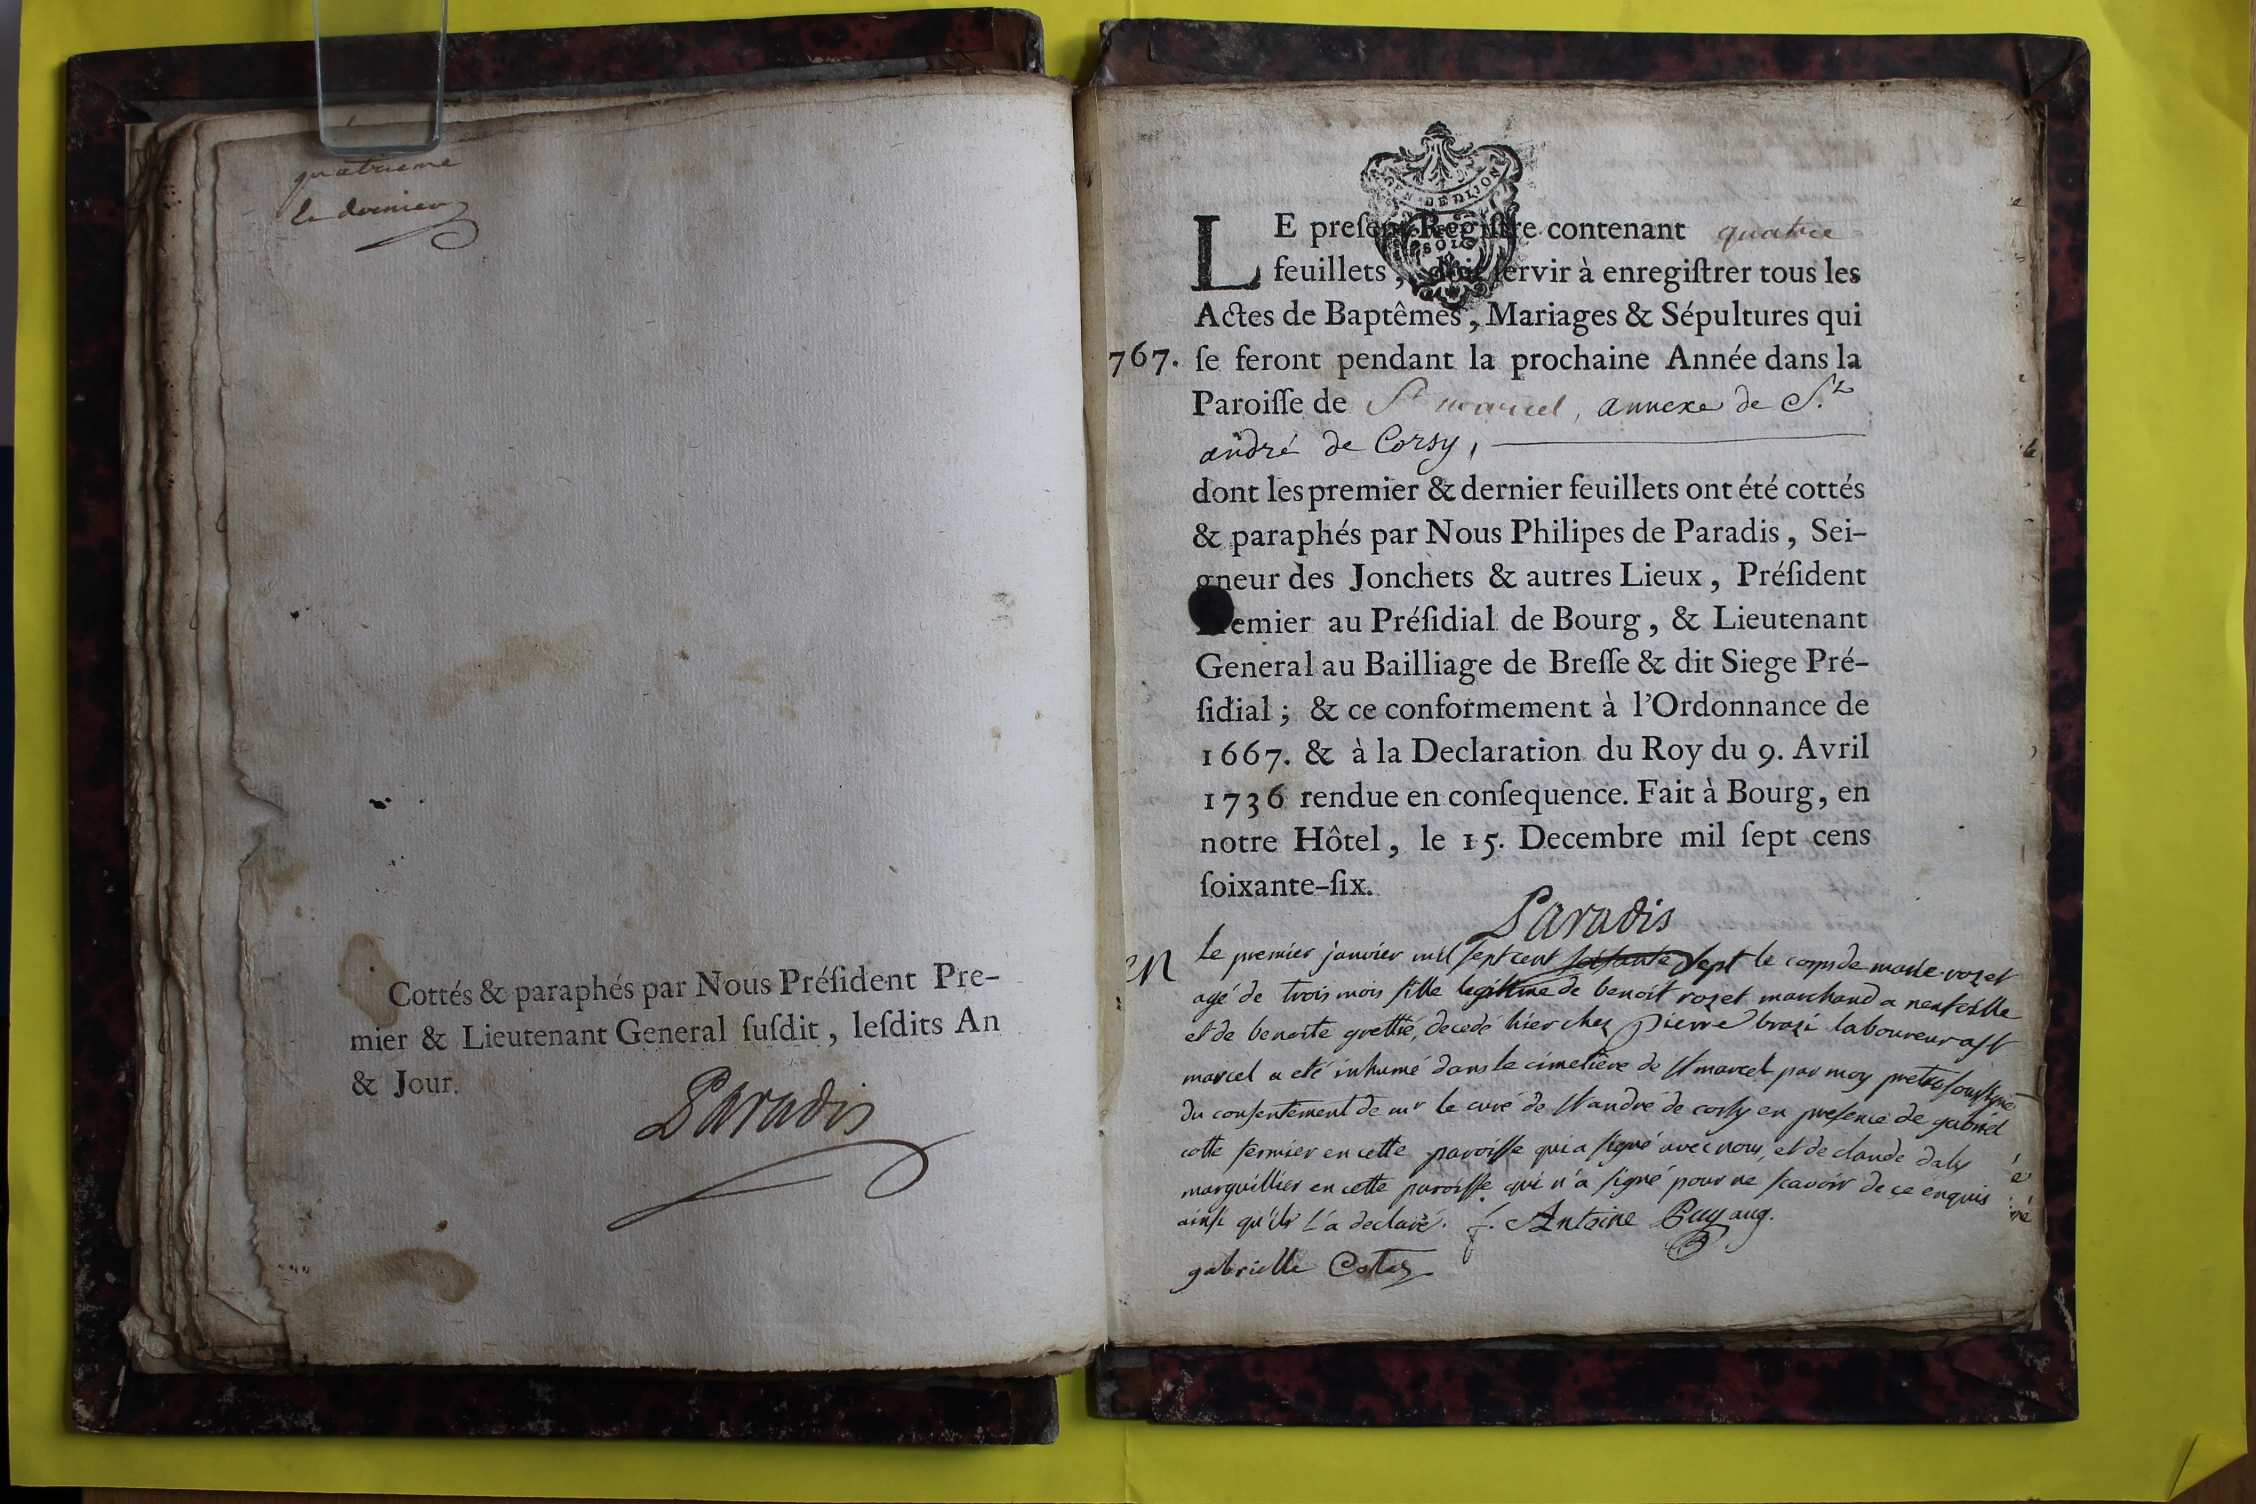 quatrieme
Le dernier
Cottés & paraphés par Nous Préſident Pre-
mier & Lieutenant General ſuſdit, leſdits An
& Jour.
Paradis
GEN. DE DIJON
LE preſent Regiſtre contenant quatre
feuillets, doit ſervir à enregiſtrer tous les
Actes de Baptêmes, Mariages & Sépultures qui
767. ſe feront pendant la prochaine Année dans la
Paroiſſe de St marcel, annexe de St
andré de Corsy,
dont les premier & dernier feuillets ont été cottés
& paraphés par Nous Philipes de Paradis, Sei-
gneur des Jonchets & autres Lieux, Préſident
Premier au Préſidial de Bourg, & Lieutenant
General au Bailliage de Breſſe & dit Siege Pré-
ſidial; & ce conformement à l'Ordonnance de
1667. & à la Declaration du Roy du 9. Avril
1736 rendue en conſequence. Fait à Bourg, en
notre Hôtel, le 15. Decembre mil ſept cens
ſoixante-ſix.
Paradis
Le premier janvier mil ſept cent ſoiſante ſept le corps de marie rozet
agé de trois mois fille legittime de benoit rozet marchand a
et de benoite decedé hier chez pierre brazi laboureur a ſt
marcel a eté inhumé dans le cimetière de ſt marcel par moy pretre ſouſſigné
du conſentement de mr le curé de ſt andré de corſy en preſence de gabriel
cotte fermier en cette paroiſſe qui a ſigné avec nous, et de claude
marguillier en cette paroiſſe qui n'a ſigné pour ne ſcavoir de ce enquis
ainſi qu'il l'a declaré. f. Antoine Puy aug.
gabrielle Cote